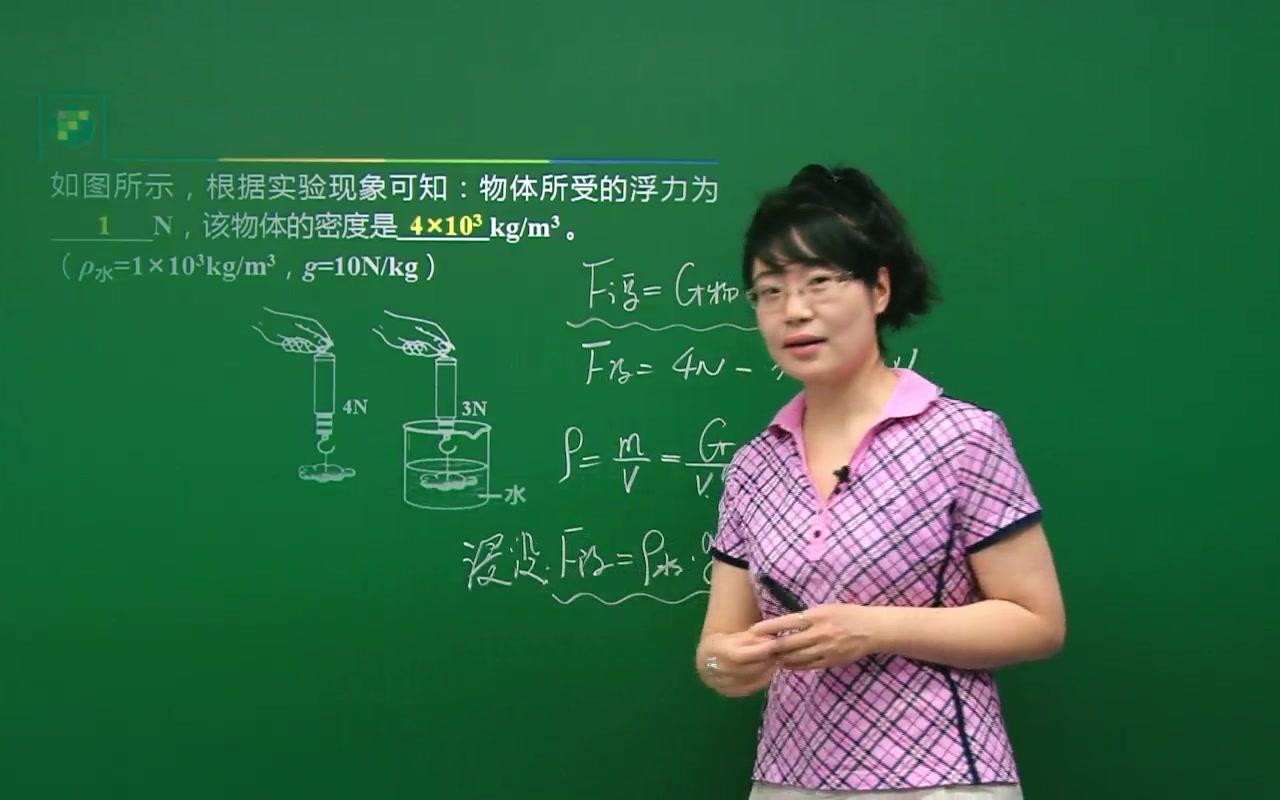 如图所示，根据实验现象可知：物体所受的浮力为
1 N，该物体的密度是 4×10³ kg/m³。
（ρ水=1×10³kg/m³，g=10N/kg）
F浮= G物
F浮= 4N –
4N
3N
水
ρ= m/V = G/V
浸没. F浮=ρ水·g